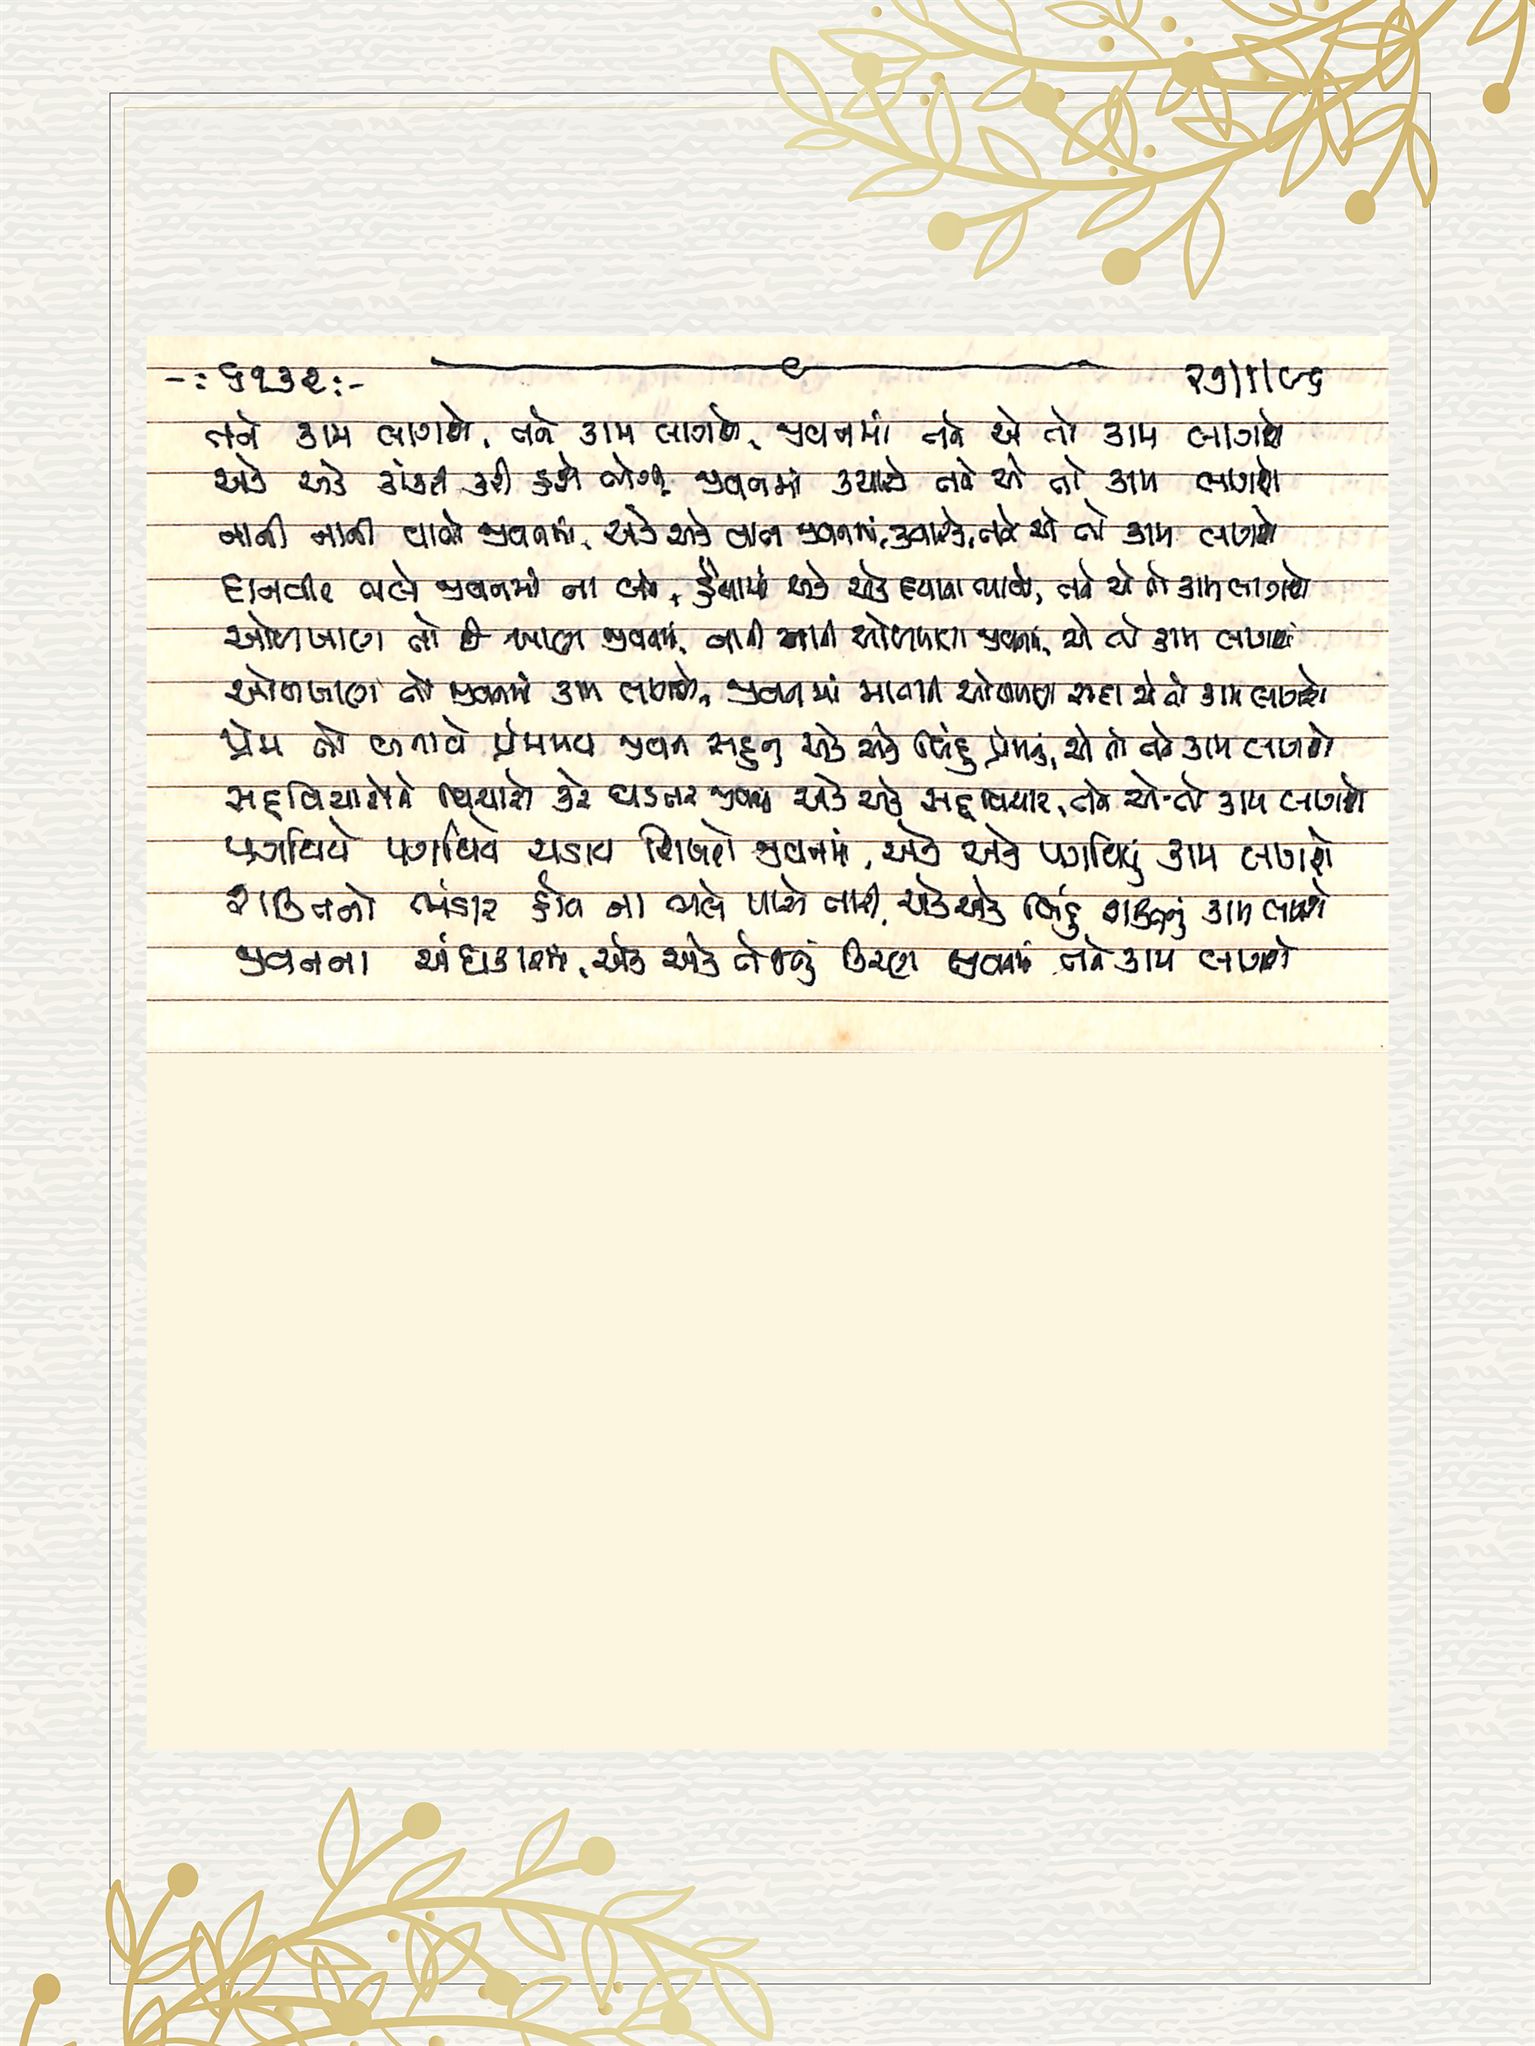 -: ૬૧૩૨ :-
તને કામ લાગશે, તને કામ લાગશે, જીવનમાં તને એ તો કામ લાગશે
એક એક કાંકરી કરી હશે ભેગી જીવનમાં ક્યારે તને એ તો કામ લાગશે
નાની નાની વાતો જીવનમાં, એક એક વાત જીવનમાં, ક્યારેક, તને એ તો કામ લાગશે
દાનવીર ભલે જીવનમાં ના બને, હૈયામાં એક એક દયાના ભાવો, તને એ તો કામ લાગશે
ઓળખાણ તો છે ખાણ જીવનમાં, નાની નાની ઓળખાણ જીવનમાં, એ તો કામ લાગશે
ઓળખાણ તો જીવનમાં કામ લાગશે, જીવનમાં માનવીની ઓળખાણ સદા એ તો કામ લાગશે
પ્રેમ તો બનાવે પ્રેમમય જીવન સહુનું એક એક બિંદુ પ્રેમનું, એ તો તને કામ લાગશે
સદ્દવિચારોને વિચારો કરે ઘડતર જીવનમાં એક એક સદ્દવિચાર, તને એ તો કામ લાગશે
પગથિયે પગથિયે ચડાય શિખરો જીવનમાં, એક એક પગથિયું કામ લાગશે
શક્તિનો ભંડાર હોય ના ભલે પાસે તારી, એક એક બિંદુ શક્તિનું કામ લાગશે
જીવનના અંધકારમાં, એક એક તેજનું કિરણ જીવનમાં તને કામ લાગશે